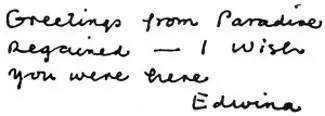 Greetings from Paradise
Regained — I wish
you were here
Edwina